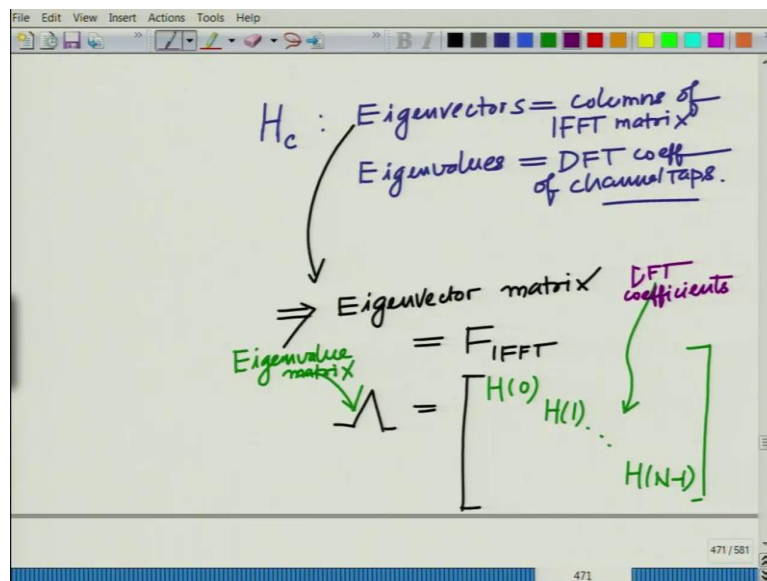 File Edit View Insert Actions Tools Help
H_c : Eigenvectors = columns of
IFFT matrix
Eigenvalues = DFT coeff
of channel Taps.
⇒ Eigenvector matrix
DFT
coefficients
= F_IFFT
Eigenvalue
matrix
Λ = [ H(0)
H(1)
⋱
H(N-1) ]
471 / 581
471